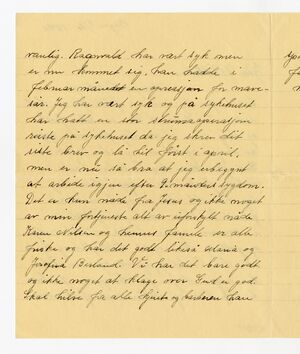 vanlig. Ragnvald har vært syk men
er nu kommet sig, han hadde i
februar måned en operasjon for mave-
sår. Jeg har vært syk og på sykehuset
har hatt en stor strumaoperasjon
reiste på sykehuset da jeg skrev ditt
siste brev og lå til først i april,
men er nu så bra at jeg er begynt
at arbeide igjen efter 4 måneders sygdom.
Det er kun nåde fra Jesus og ikke noget
av min fortjeneste alt av ufortjent nåde
Karen Nilsen og hennes familie er alle
friske og har det godt likeså Maria og
Josefine Berland. Vi har det bare godt
og ikke noget at klage over Gud er god.
Skal hilse fra alle
han